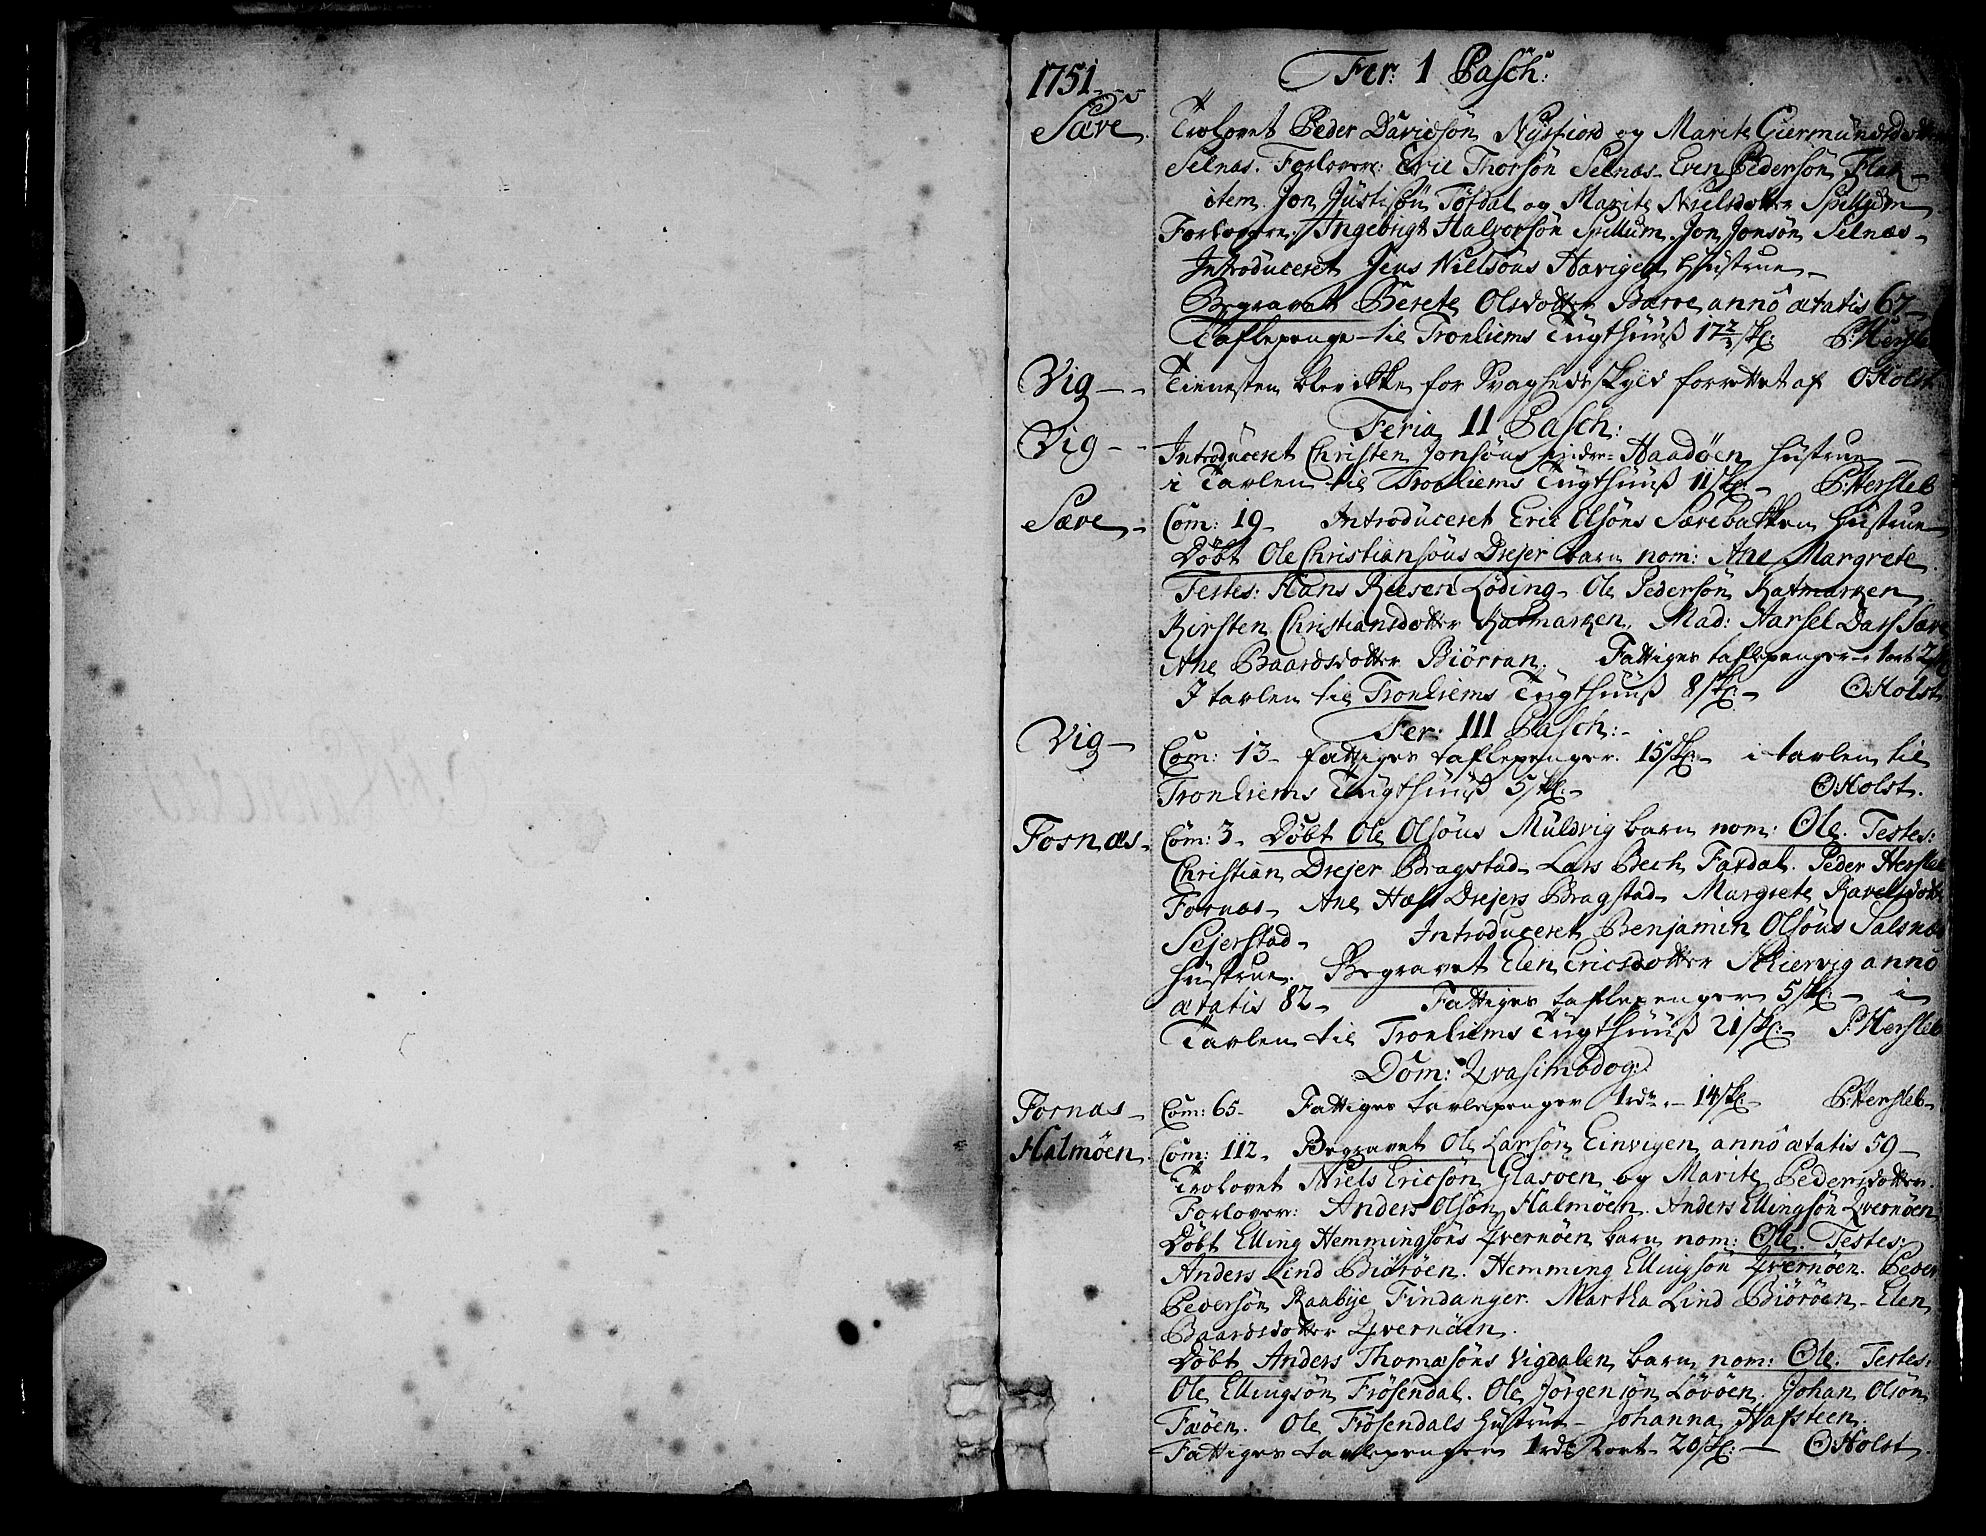 1751. Fer: 1 Pasch:
Sæve. Trolovet Peder Davidsön Nysfiord og Marite Giermundsdotter
Selnæs. Forlover: Eric Thorsön Selnæs. Even Pedersön Flak-
item. Jon Justisön Töfdal og Marite Nielsdotter Spillum
Forlovere: Ingebrigt Halvorsön Spillum. Jon Jonsön Selnæs-
Introduceret Jens Nielsöns Havigen Hustrue-
Begravet Berete Olsdotter Barre anno ætatis 67-
Taflepenge til Tronhiems Tugthuuß 17 s/k: P: Hersleb
Vig- Tienesten blev ikke for Svagheds skyld forrettet af O Holst
Feria II Pasch:
Vig- Introduceret Christen Jonsöns Haadöen Hustrue-
i Tavlen til Tronhiems Tugthuuß 11 sk: P: Hersleb
Sæve- Com: 19- Introduceret Eric Olsöns Sævebakken Hustrue-
Döbt Ole Christiansöns Drejer barn nom: Ane Margrete.
Testes: Hans Reesen Löding- Ole Pedersön Katmarken.
Kirsten Christiansdotter Katmarken. Mad: Harsel Dass Sæve
Ane Baardsdotter Biörran. Fattiges taflepenger 1 ort 2
I tavlen til Tronhiems Tugthuuß 8 sk:- O Holst
Fer: III Pasch:-
Vig- Com: 13- fattiges taflepenger. 15 sk:- i tavlen til
Tronhiems Tugthuuß 5 sk:- O Holst.
Fosnæs- Com: 3- Döbt Ole Olsöns Muldvig barn nom: Ole. Testes:
Christian Drejer Bragstad- Lars Bech Fardal. Peder Hersleb
Fosnæs- Ane Hass Drejers Bragstad- Margrete Ravelsdotter
Sejerstad- Introduceret Benjamin Olsöns Salsnæs
Hustrue. Begravet Elen Ericsdotter Skiervig anno
ætatis 82- Fattiges taflepenger 5 sk:- i
Tavlen til Tronhiems Tugthuuß 21 sk:- P: Hersleb
Dom: Qvasimodog:
Fosnæs- Com: 65- Fattiges tavlepenger 1 rdr.- 14 sk:- P: Hersleb-
Halmöen Com: 112. Begravet Ole Larsön Einvigen anno ætatis 50-
Trolovet Niels Ericsön Glasöen og Marite Pedersdotter.
Forlover: Anders Olsön Halmöen. Anders Ellingsön Qvernöen
Döbt Elling Hemmingsöns Qvernöen barn nom: Ole. Testes:
Anders Lind Biöröen. Hemming Ellingsön Qvernöen. Peder
Pedersön Raabye Findanger. Martha Lind Biöröen- Elen
Baardsdotter Qvernöen.
Döbt Anders Thomæsöns Vigdalen barn nom: Ole. Testes:
Ole Ellingsön Frösendal. Ole Jörgensön Lövöen. Johan Olsön
Faöen. Ole Frösendals Hustrue- Johanna Hafsteen.
Fattiges tavlepenger 1 rdr 2 ort- 20 sk:- O Holst.